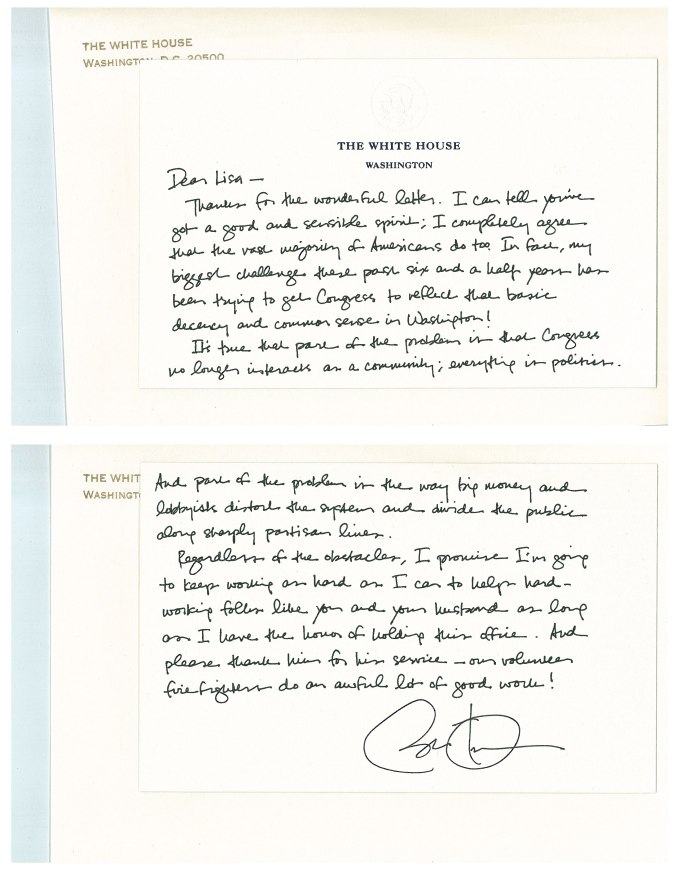 THE WHITE HOUSE
WASHINGTON, D.C. 20500
THE WHITE HOUSE
WASHINGTON
Dear Lisa —
Thanks for the wonderful letter. I can tell you've
got a good and sensible spirit; I completely agree
that the vast majority of Americans do too. In fact, my
biggest challenge these past six and a half years has
been trying to get Congress to reflect that basic
decency and common sense in Washington!
It's true that part of the problem is that Congress
no longer interacts as a community; everything is politics.
THE WHIT
WASHINGT
And part of the problem is the way big money and
lobbyists distort the system and divide the public
along sharply partisan lines.
Regardless of the obstacles, I promise I'm going
to keep working as hard as I can to help hard-
working folks like you and your husband as long
as I have the honor of holding this office. And
please thank him for his service — our volunteer
firefighters do an awful lot of good work!